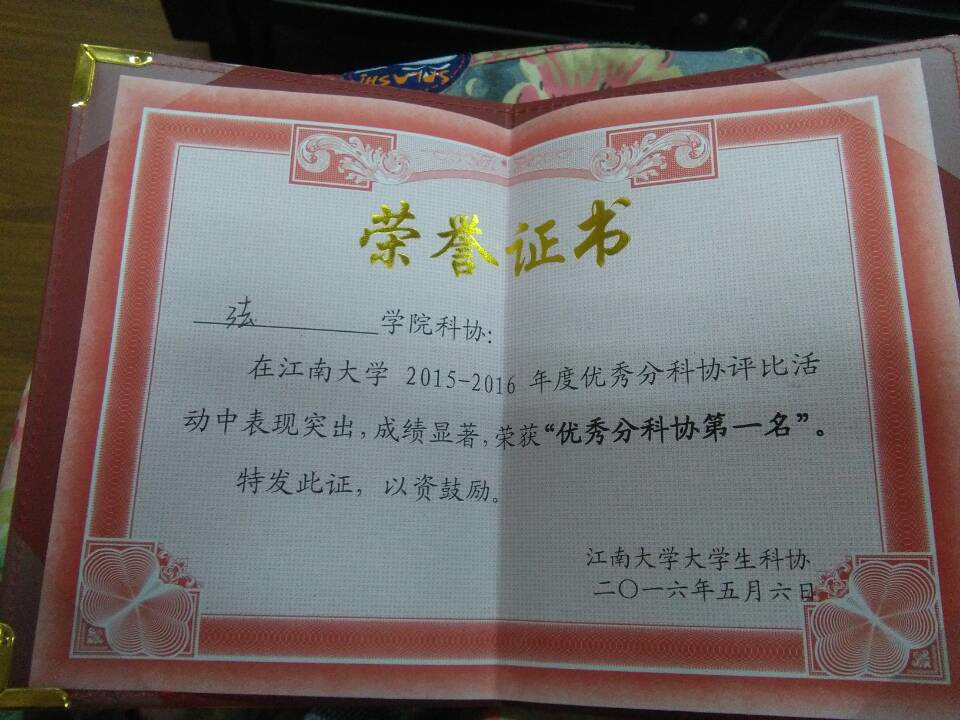 荣誉证书
法学院科协：
在江南大学 2015-2016 年度优秀分科协评比活
动中表现突出，成绩显著，荣获“优秀分科协第一名”。
特发此证，以资鼓励。
江南大学大学生科协
二〇一六年五月六日